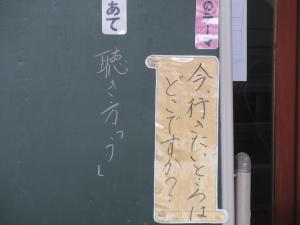 のテーマ
今行きたいところは
どこですか?
あて
聴き方「う」